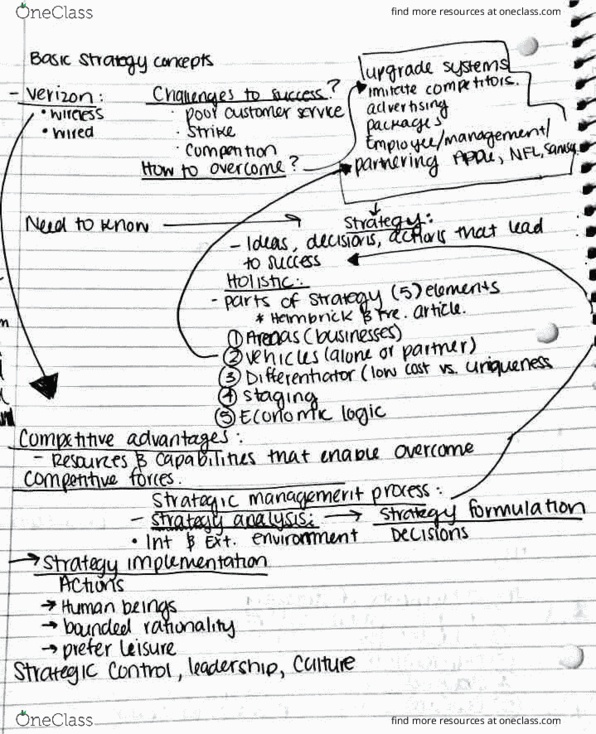 OneClass
find more resources at oneclass.com
Basic strategy concepts
- verizon:
• wireless
• wired
Challenges to success?
· poor customer service
· Strike
· Competition
How to overcome?
upgrade systems
imitate competitors.
advertising
packages
Employee/management/
partnering Apple, NFL,
Need to know →
Strategy:
- Ideas, decisions, actions that lead
to success
Holistic:
- parts of strategy (5) elements
* & article.
① Arenas (businesses)
② vehicles (alone or partner)
③ Differentiator (low cost vs. uniqueness
④ staging
⑤ Economic logic
Competitive advantages:
- Resources & capabilities that enable overcome
competitive forces.
Strategic management process:
- strategy analysis: → strategy formulation
• Int & Ext. environment Decisions
→ strategy implementation
Actions
→ Human beings
→ bounded rationality
→ prefer leisure
Strategic control, leadership, culture
OneClass
find more resources at oneclass.com